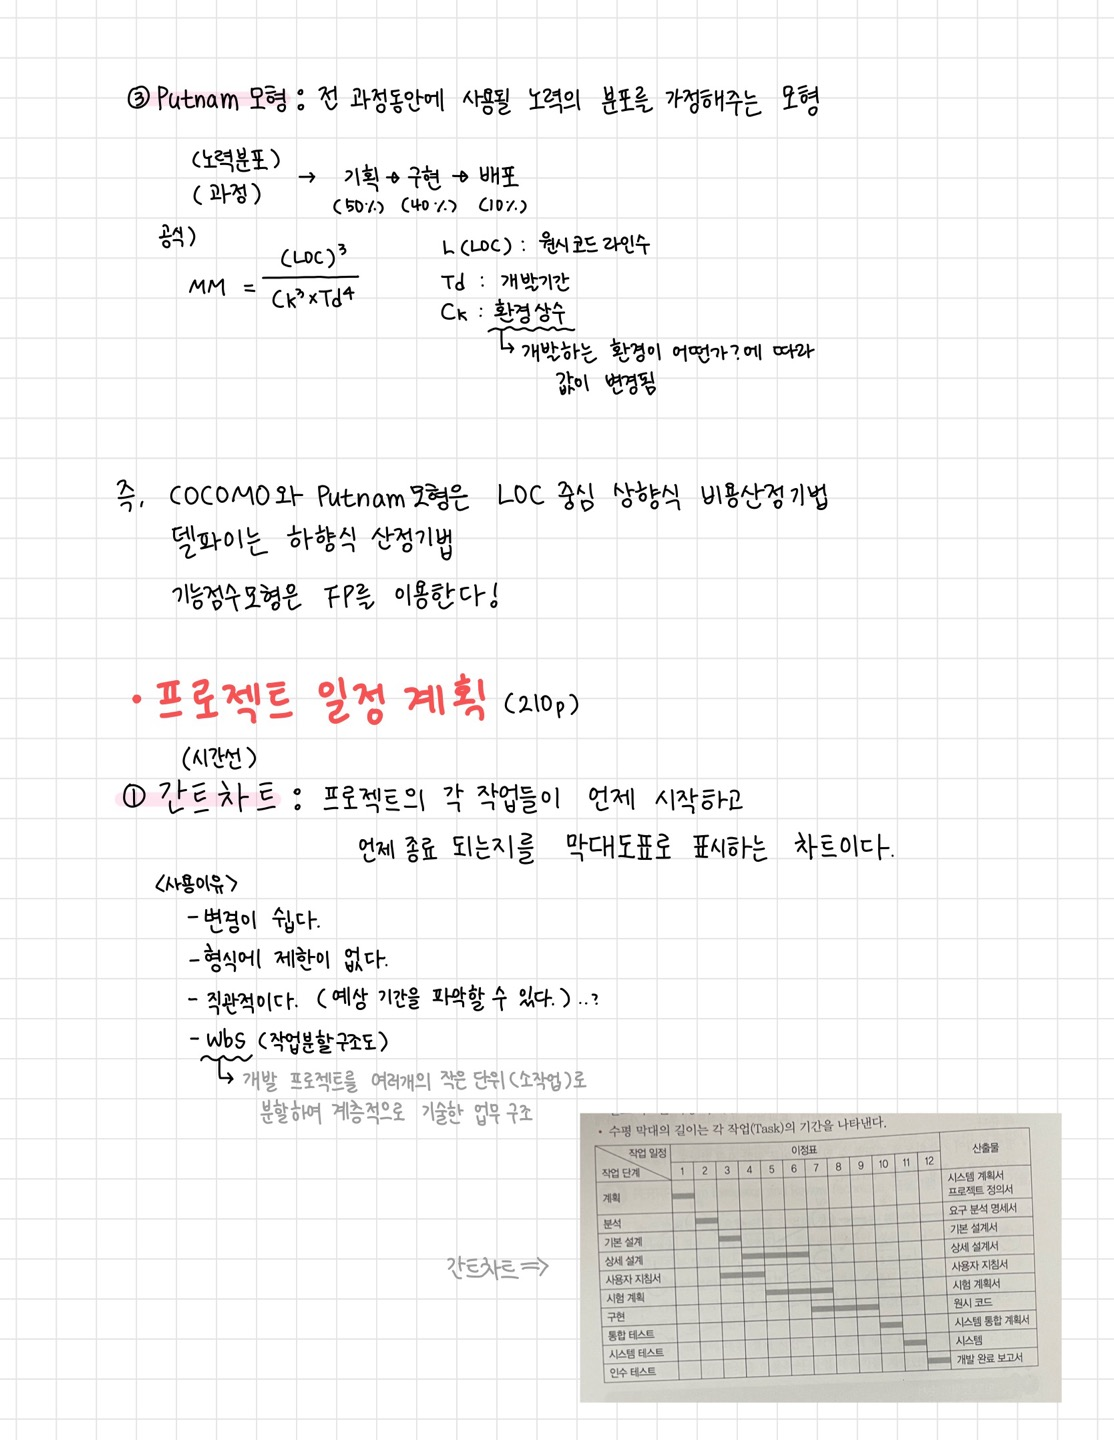 ③ Putnam 모형 : 전 과정동안에 사용될 노력의 분포를 가정해주는 모형
(노력분포)
(과정) → 기획 → 구현 → 배포
(50%) (40%) (10%)
공식)
MM = (LOC)³ / Ck³×Td⁴
L (LOC) : 원시코드 라인수
Td : 개발기간
Ck : 환경상수
↳ 개발하는 환경이 어떤가?에 따라
값이 변경됨
즉, COCOMO와 Putnam모형은 LOC 중심 상향식 비용산정기법
델파이는 하향식 산정기법
기능점수모형은 FP를 이용한다!
• 프로젝트 일정 계획 (210p)
(시간선)
① 간트차트 : 프로젝트의 각 작업들이 언제 시작하고
언제 종료 되는지를 막대도표로 표시하는 차트이다.
<사용이유>
- 변경이 쉽다.
- 형식에 제한이 없다.
- 직관적이다. (예상 기간을 파악할 수 있다.)..?
- Wbs (작업분할구조도)
↳ 개발 프로젝트를 여러개의 작은 단위(소작업)로
분할하여 계층적으로 기술한 업무 구조
간트차트 ⇒
• 수평 막대의 길이는 각 작업(Task)의 기간을 나타낸다.
작업 일정 이정표 산출물
작업 단계 1 2 3 4 5 6 7 8 9 10 11 12
계획 시스템 계획서
프로젝트 정의서
분석 요구 분석 명세서
기본 설계 기본 설계서
상세 설계 상세 설계서
사용자 지침서 사용자 지침서
시험 계획 시험 계획서
구현 원시 코드
통합 테스트 시스템 통합 계획서
시스템 테스트 시스템
인수 테스트 개발 완료 보고서